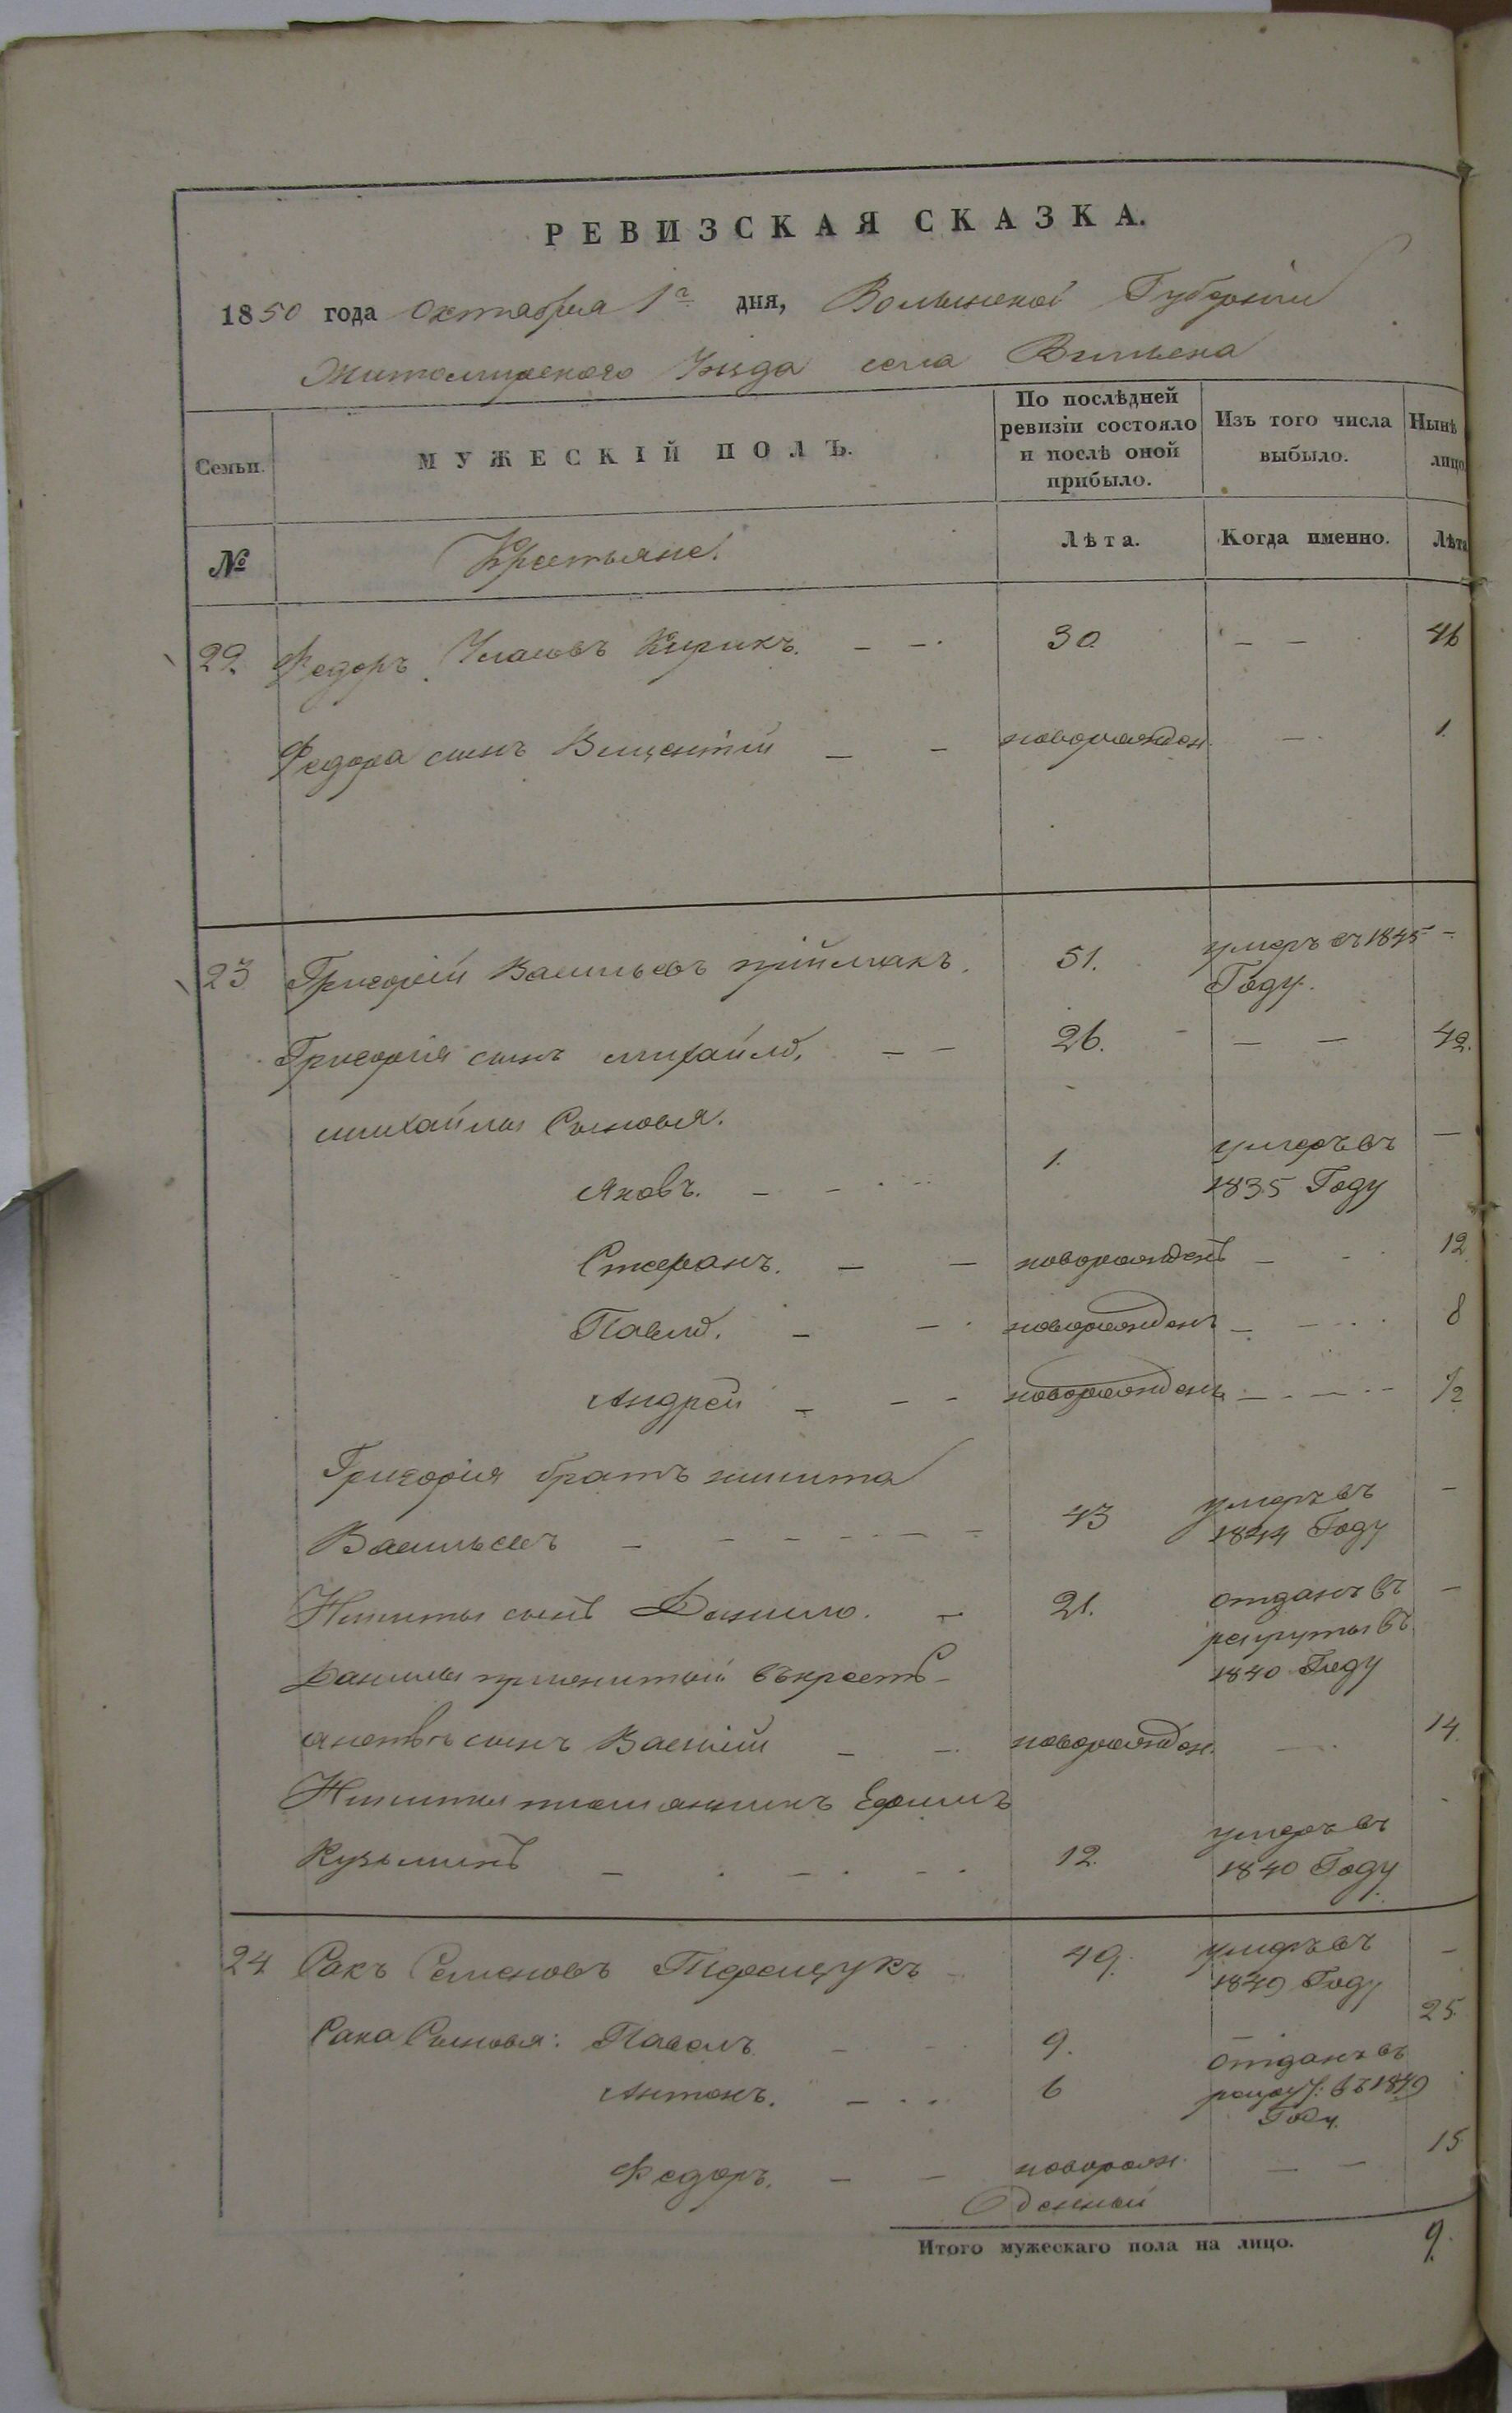 РЕВИЗСКАЯ СКАЗКА.
1850 года Октября 1го дня, Волынской Губерніи
Житомирского Уѣзда села Вильска
Семьи. МУЖЕСКІЙ ПОЛЪ. По послѣдней ревизіи состояло и послѣ оной прибыло. Изъ того числа выбыло. Нынѣ лицо
№ Крестьяне. Лѣта. Когда именно. Лѣта
22 Федоръ Кирикъ. — — 30 — — 46
Федора сынъ Викентій — — новорожден — 1.
23 Григорій Васильевъ приймакъ. 51. умеръ въ 1845 —
Году.
Григорія сынъ михайло, — — 26. — — 42.
михайлы Сыновья.
Яковъ. — — 1. умеръ въ —
1835 Году
Стефанъ. — — новорожденъ — — 12
Павло. — — новорожденъ — — 8
Андрей — — — новорожденъ — — — 1/2
Григорія братъ никита
Васильевъ — — — — — 43 умеръ въ —
1844 Году
Никиты сынъ Данило. — 21. отданъ въ —
рекруты въ
Данилы прижитый въ крестъ-
1840 Году
янствѣ сынъ Василій — — новорожден. — 14.
Никиты племянникъ Ефимъ
Кузьминъ — — — 12. умеръ въ
1840 Году
24 Сакъ Семеновъ 49. умеръ въ —
1849 Году
Сака Сыновья: Павелъ — 9. — 25.
Антонъ. — 6 отданъ въ
рекру: въ 1849
Году.
Федоръ. — — новорож — — 15
денный
Итого мужескаго пола на лицо. 9.